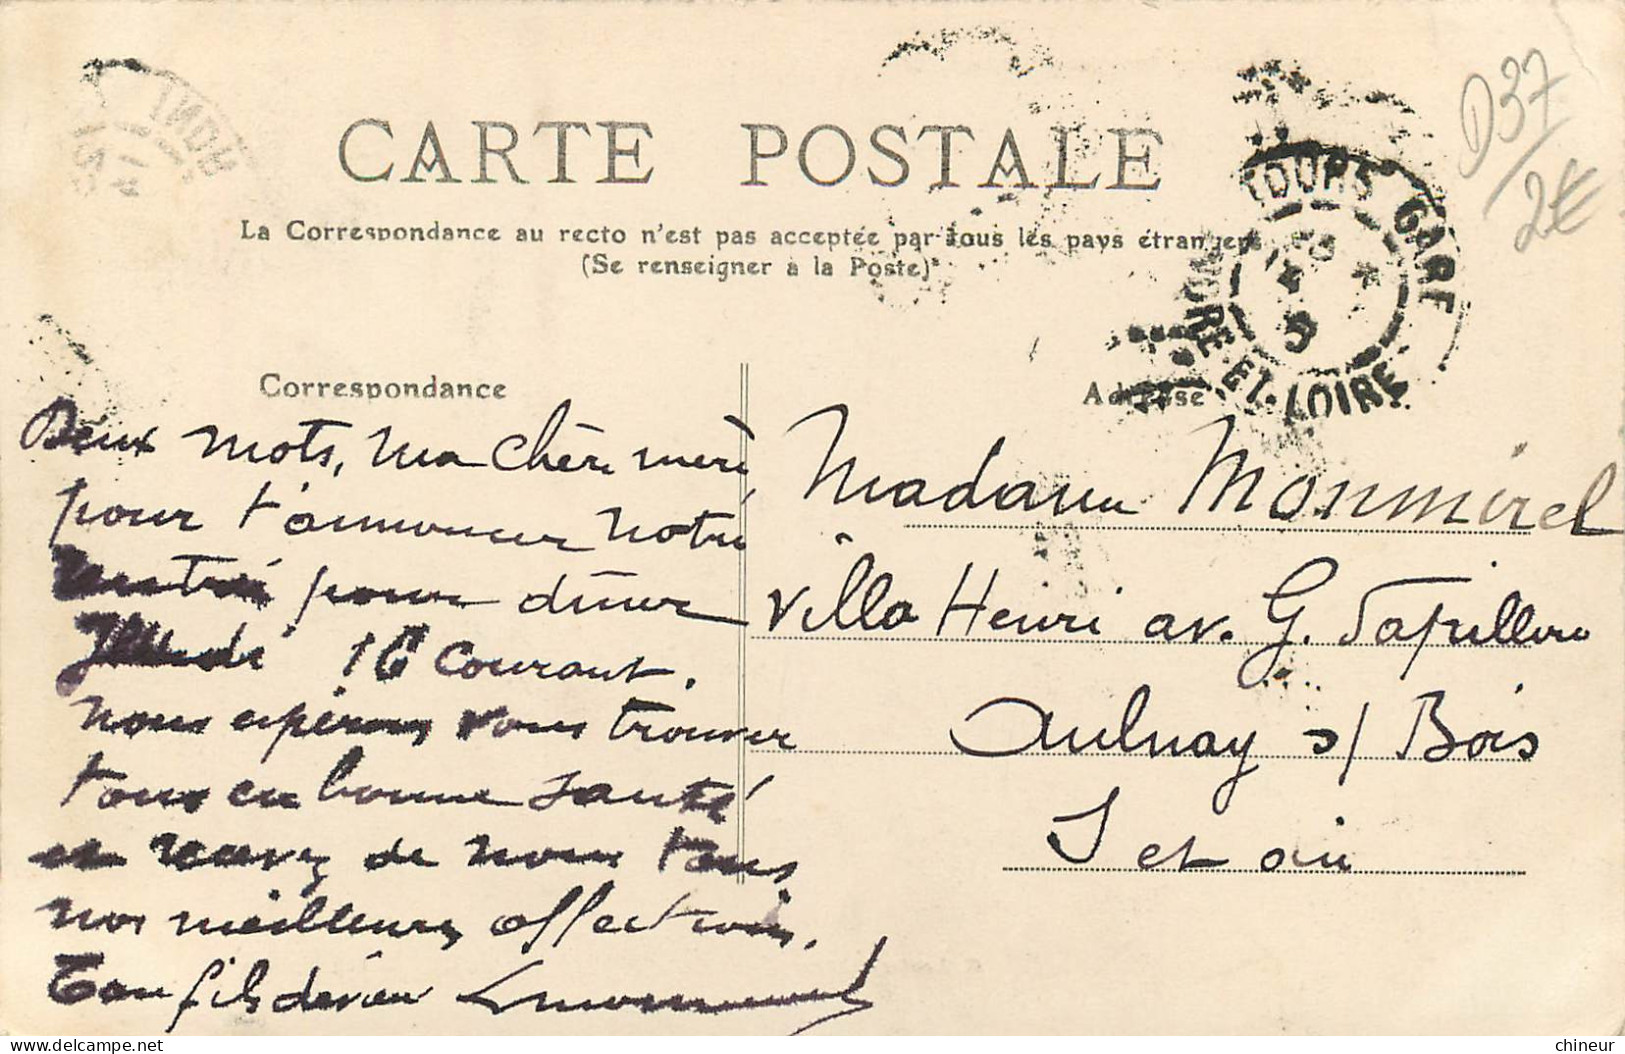 CARTE POSTALE
La Correspondance au recto n'est pas acceptée par tous les pays étrangers
(Se renseigner à la Poste)
D37
2€
TOURS GARE
INDRE-ET-LOIRE
Correspondance
Adresse
Deux mots, ma chère mère
pour t'annoncer notre
rentrée pour dîner
Jeudi 16 courant.
Nous espérons vous trouver
tous en bonne santé
et recevez de nous tous
nos meilleures affections.
Ton fils dévoué
Madame Monmirel
Villa Henri av. G.
Aulnay s/ Bois
S et oise
chineur